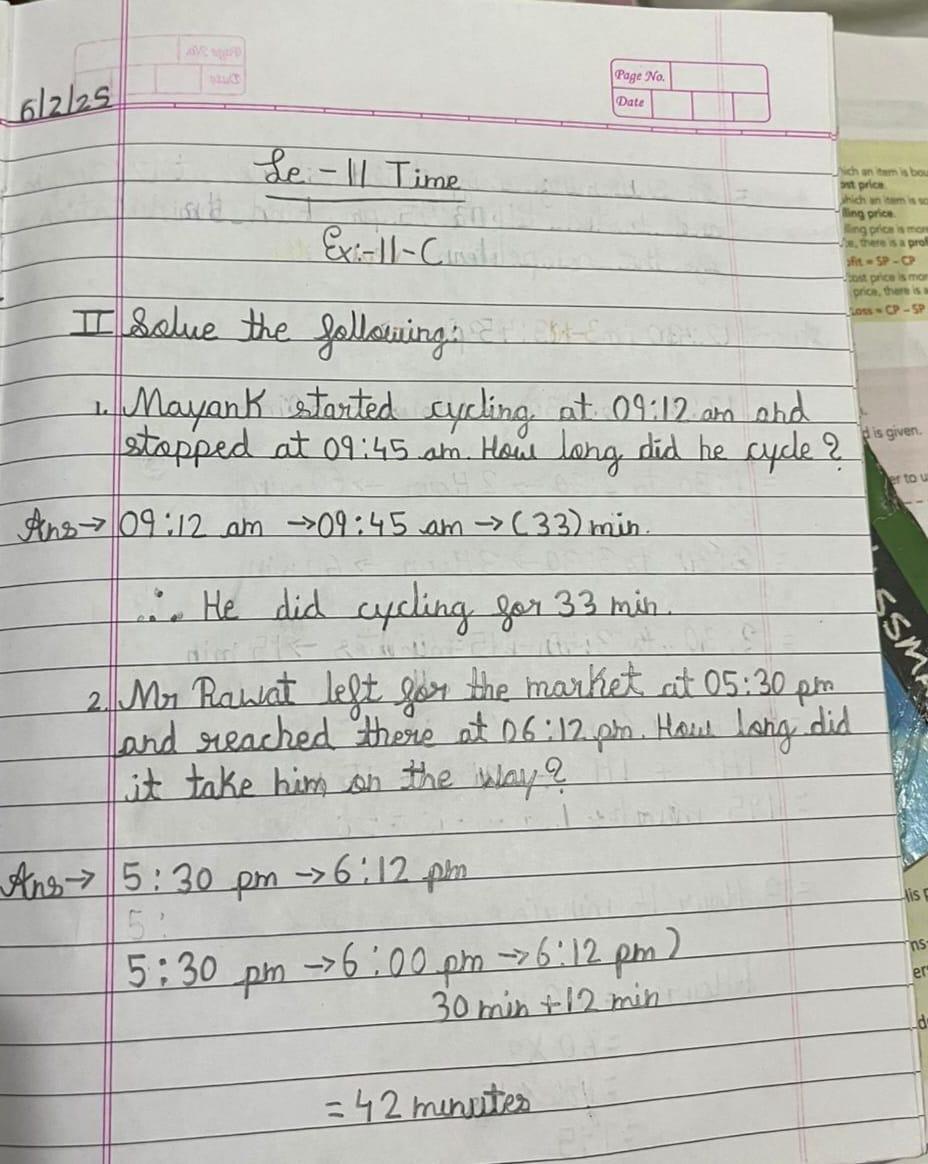 Page No.
Date
6/2/25
Le - 11 Time
Ex:-11-C
II Solve the following:
1. Mayank started cycling at 09:12 am and
stopped at 09:45 am. How long did he cycle?
Ans→ 09:12 am →09:45 am → (33) min.
∴ He did cycling for 33 min.
2. Mr Rawat left for the market at 05:30 pm
and reached there at 06:12 pm. How long did
it take him on the way?
Ans→ 5:30 pm →6:12 pm
5:
5:30 pm →6:00 pm →6:12 pm)
30 min +12 min
=42 minutes
hich an item is bou
ost price.
which an item is so
lling price.
lling price is mor
e, there is a prof
ofit = SP - CP
cost price is mor
price, there is a
Loss = CP - SP
d is given.
er to u
SSMA